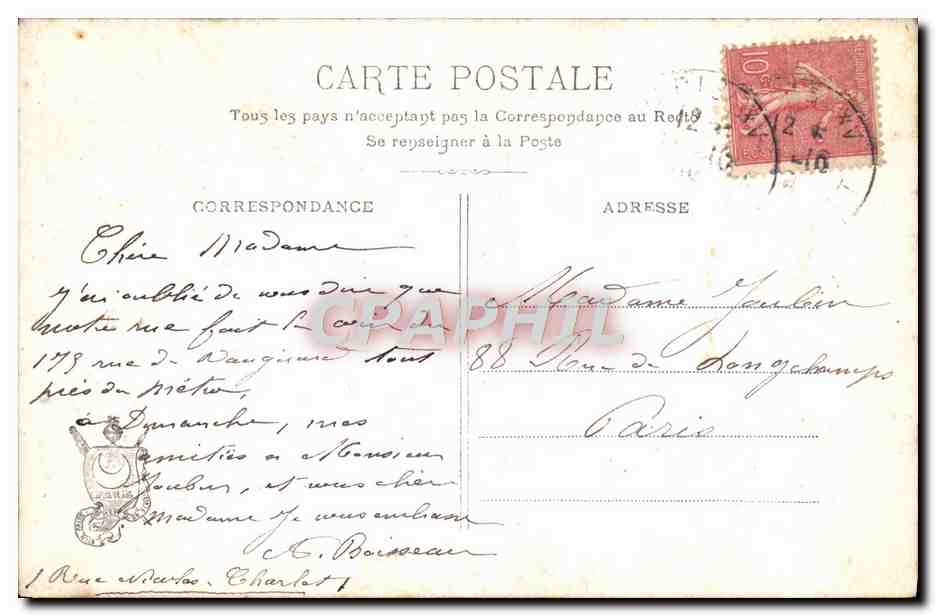 CARTE POSTALE
Tous les pays n'acceptant pas la Correspondance au Recto
Se renseigner à la Poste
CORRESPONDANCE
ADRESSE
Chère Madame
J'ai oublié de vous dire que
notre rue fait le coin du
179 rue de Vaugirard tout
près du métro,
à Dimanche, mes
amitiés à Monsieur
Joubin, et vous chère
madame je vous embrasse
A. Boisseau
1 Rue Nicolas Charlet
Madame Joubin
88 Rue de Longchamps
Paris
CPAPHIL
10
12
10
12
10